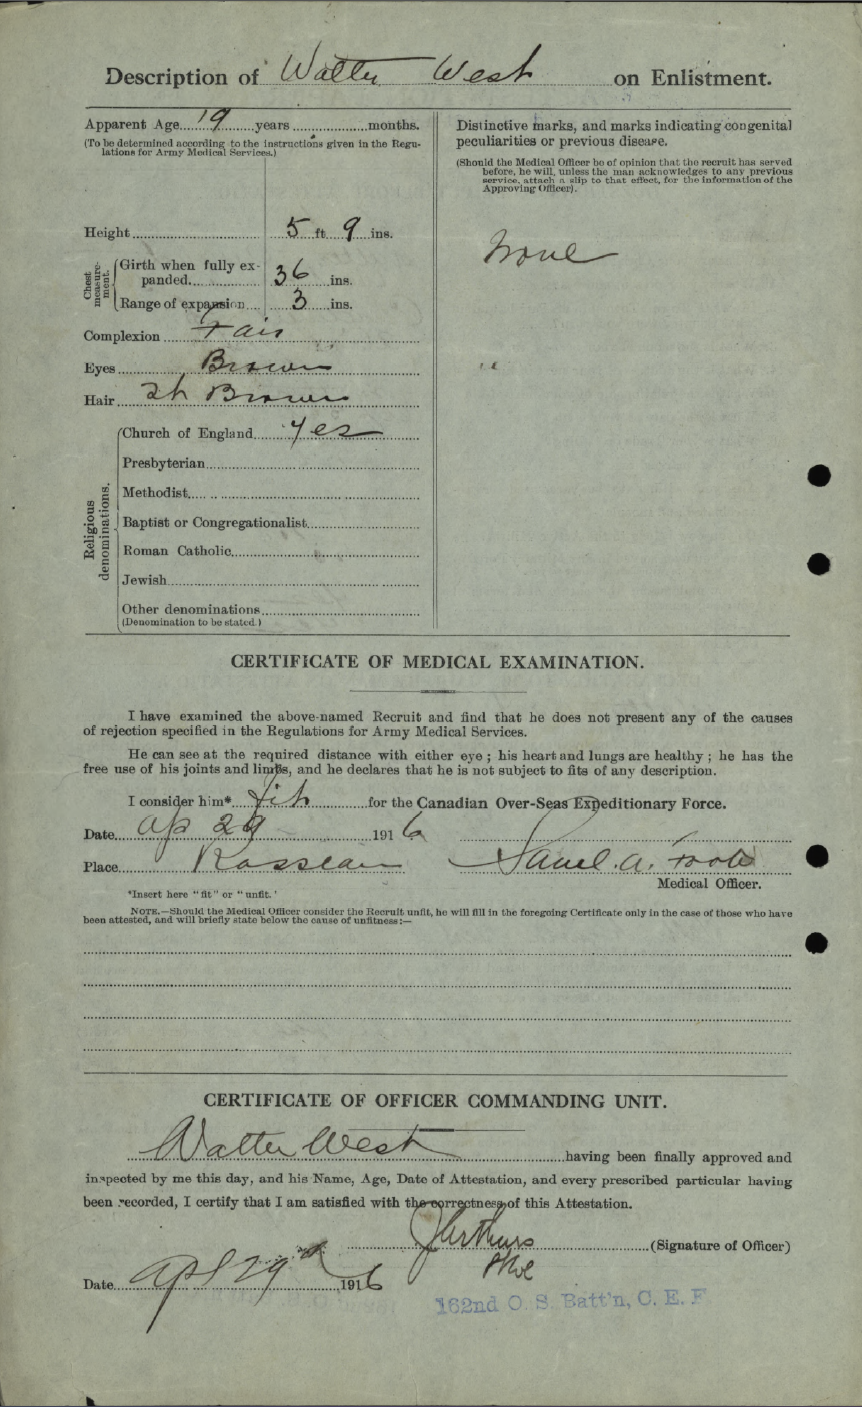 Description of Walter West on Enlistment.
Apparent Age 19 years months.
(To be determined according to the instructions given in the Regu-
lations for Army Medical Services.)
Height 5 ft 9 ins.
Chest measure-ment.
Girth when fully ex-
panded 36 ins.
Range of expansion 3 ins.
Complexion Fair
Eyes Brown
Hair Brown
Religious denominations.
Church of England Yes
Presbyterian
Methodist
Baptist or Congregationalist
Roman Catholic
Jewish
Other denominations
(Denomination to be stated.)
Distinctive marks, and marks indicating congenital
peculiarities or previous disease.
(Should the Medical Officer be of opinion that the recruit has served
before, he will, unless the man acknowledges to any previous
service, attach a slip to that effect, for the information of the
Approving Officer).
None
CERTIFICATE OF MEDICAL EXAMINATION.
I have examined the above-named Recruit and find that he does not present any of the causes
of rejection specified in the Regulations for Army Medical Services.
He can see at the required distance with either eye ; his heart and lungs are healthy ; he has the
free use of his joints and limbs, and he declares that he is not subject to fits of any description.
I consider him* fit for the Canadian Over-Seas Expeditionary Force.
Date Ap 29 1916
Place Rosseau
Medical Officer.
*Insert here "fit" or "unfit.'
NOTE.—Should the Medical Officer consider the Recruit unfit, he will fill in the foregoing Certificate only in the case of those who have
been attested, and will briefly state below the cause of unfitness:—
CERTIFICATE OF OFFICER COMMANDING UNIT.
Walter West having been finally approved and
inspected by me this day, and his Name, Age, Date of Attestation, and every prescribed particular having
been recorded, I certify that I am satisfied with the correctness of this Attestation.
JArthurs (Signature of Officer)
Date Apl 29th 1916
162nd O. S. Batt'n, C. E. F